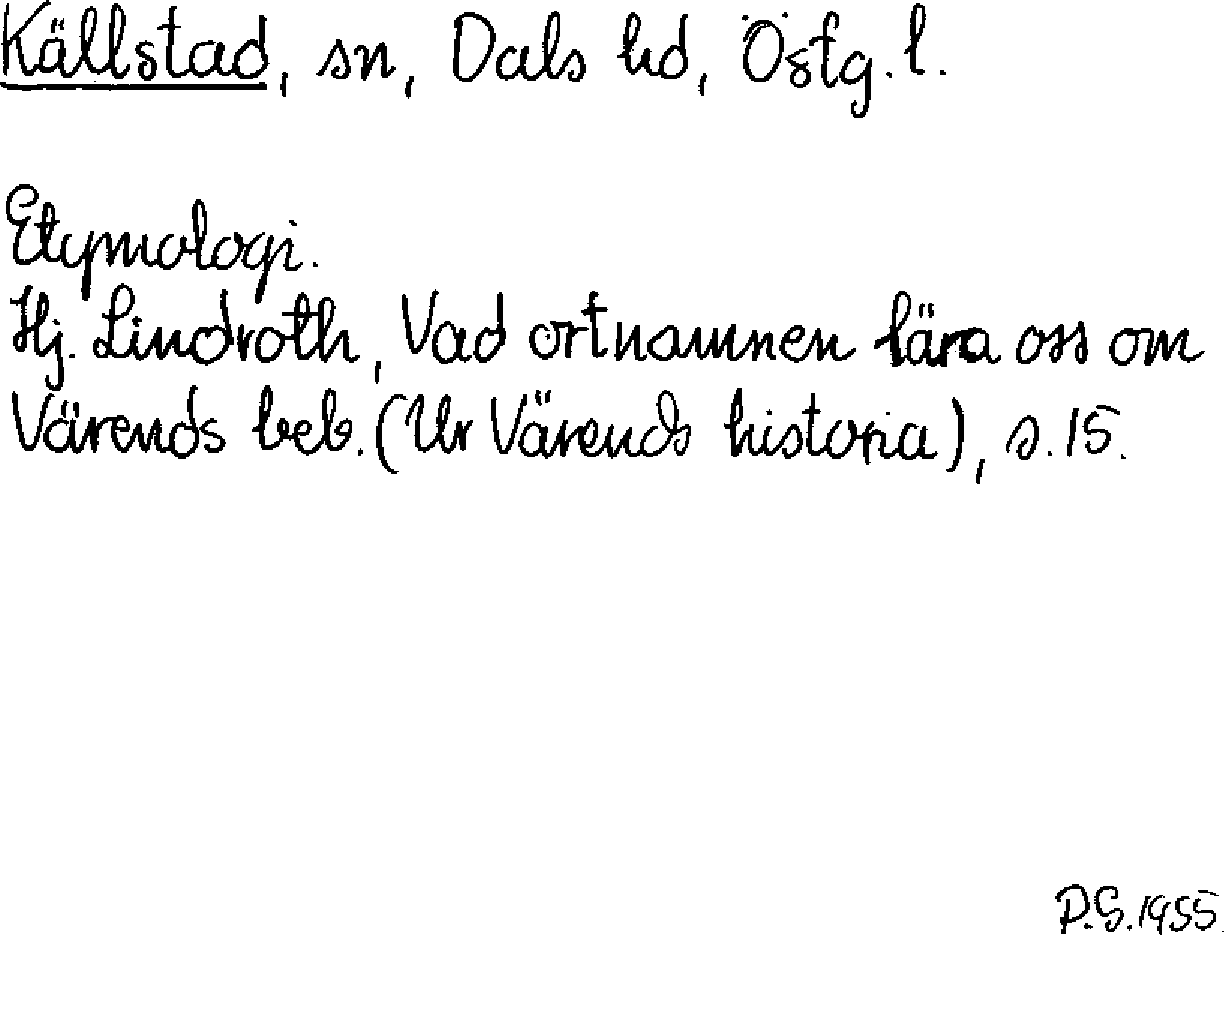 Källstad, sn, Dals hd, Östg. l.
Etymologi.
Hj. Lindroth, Vad ortnamnen lära oss om
Värends beb. (Ur Värends historia), s. 15.
P.G. 1955.